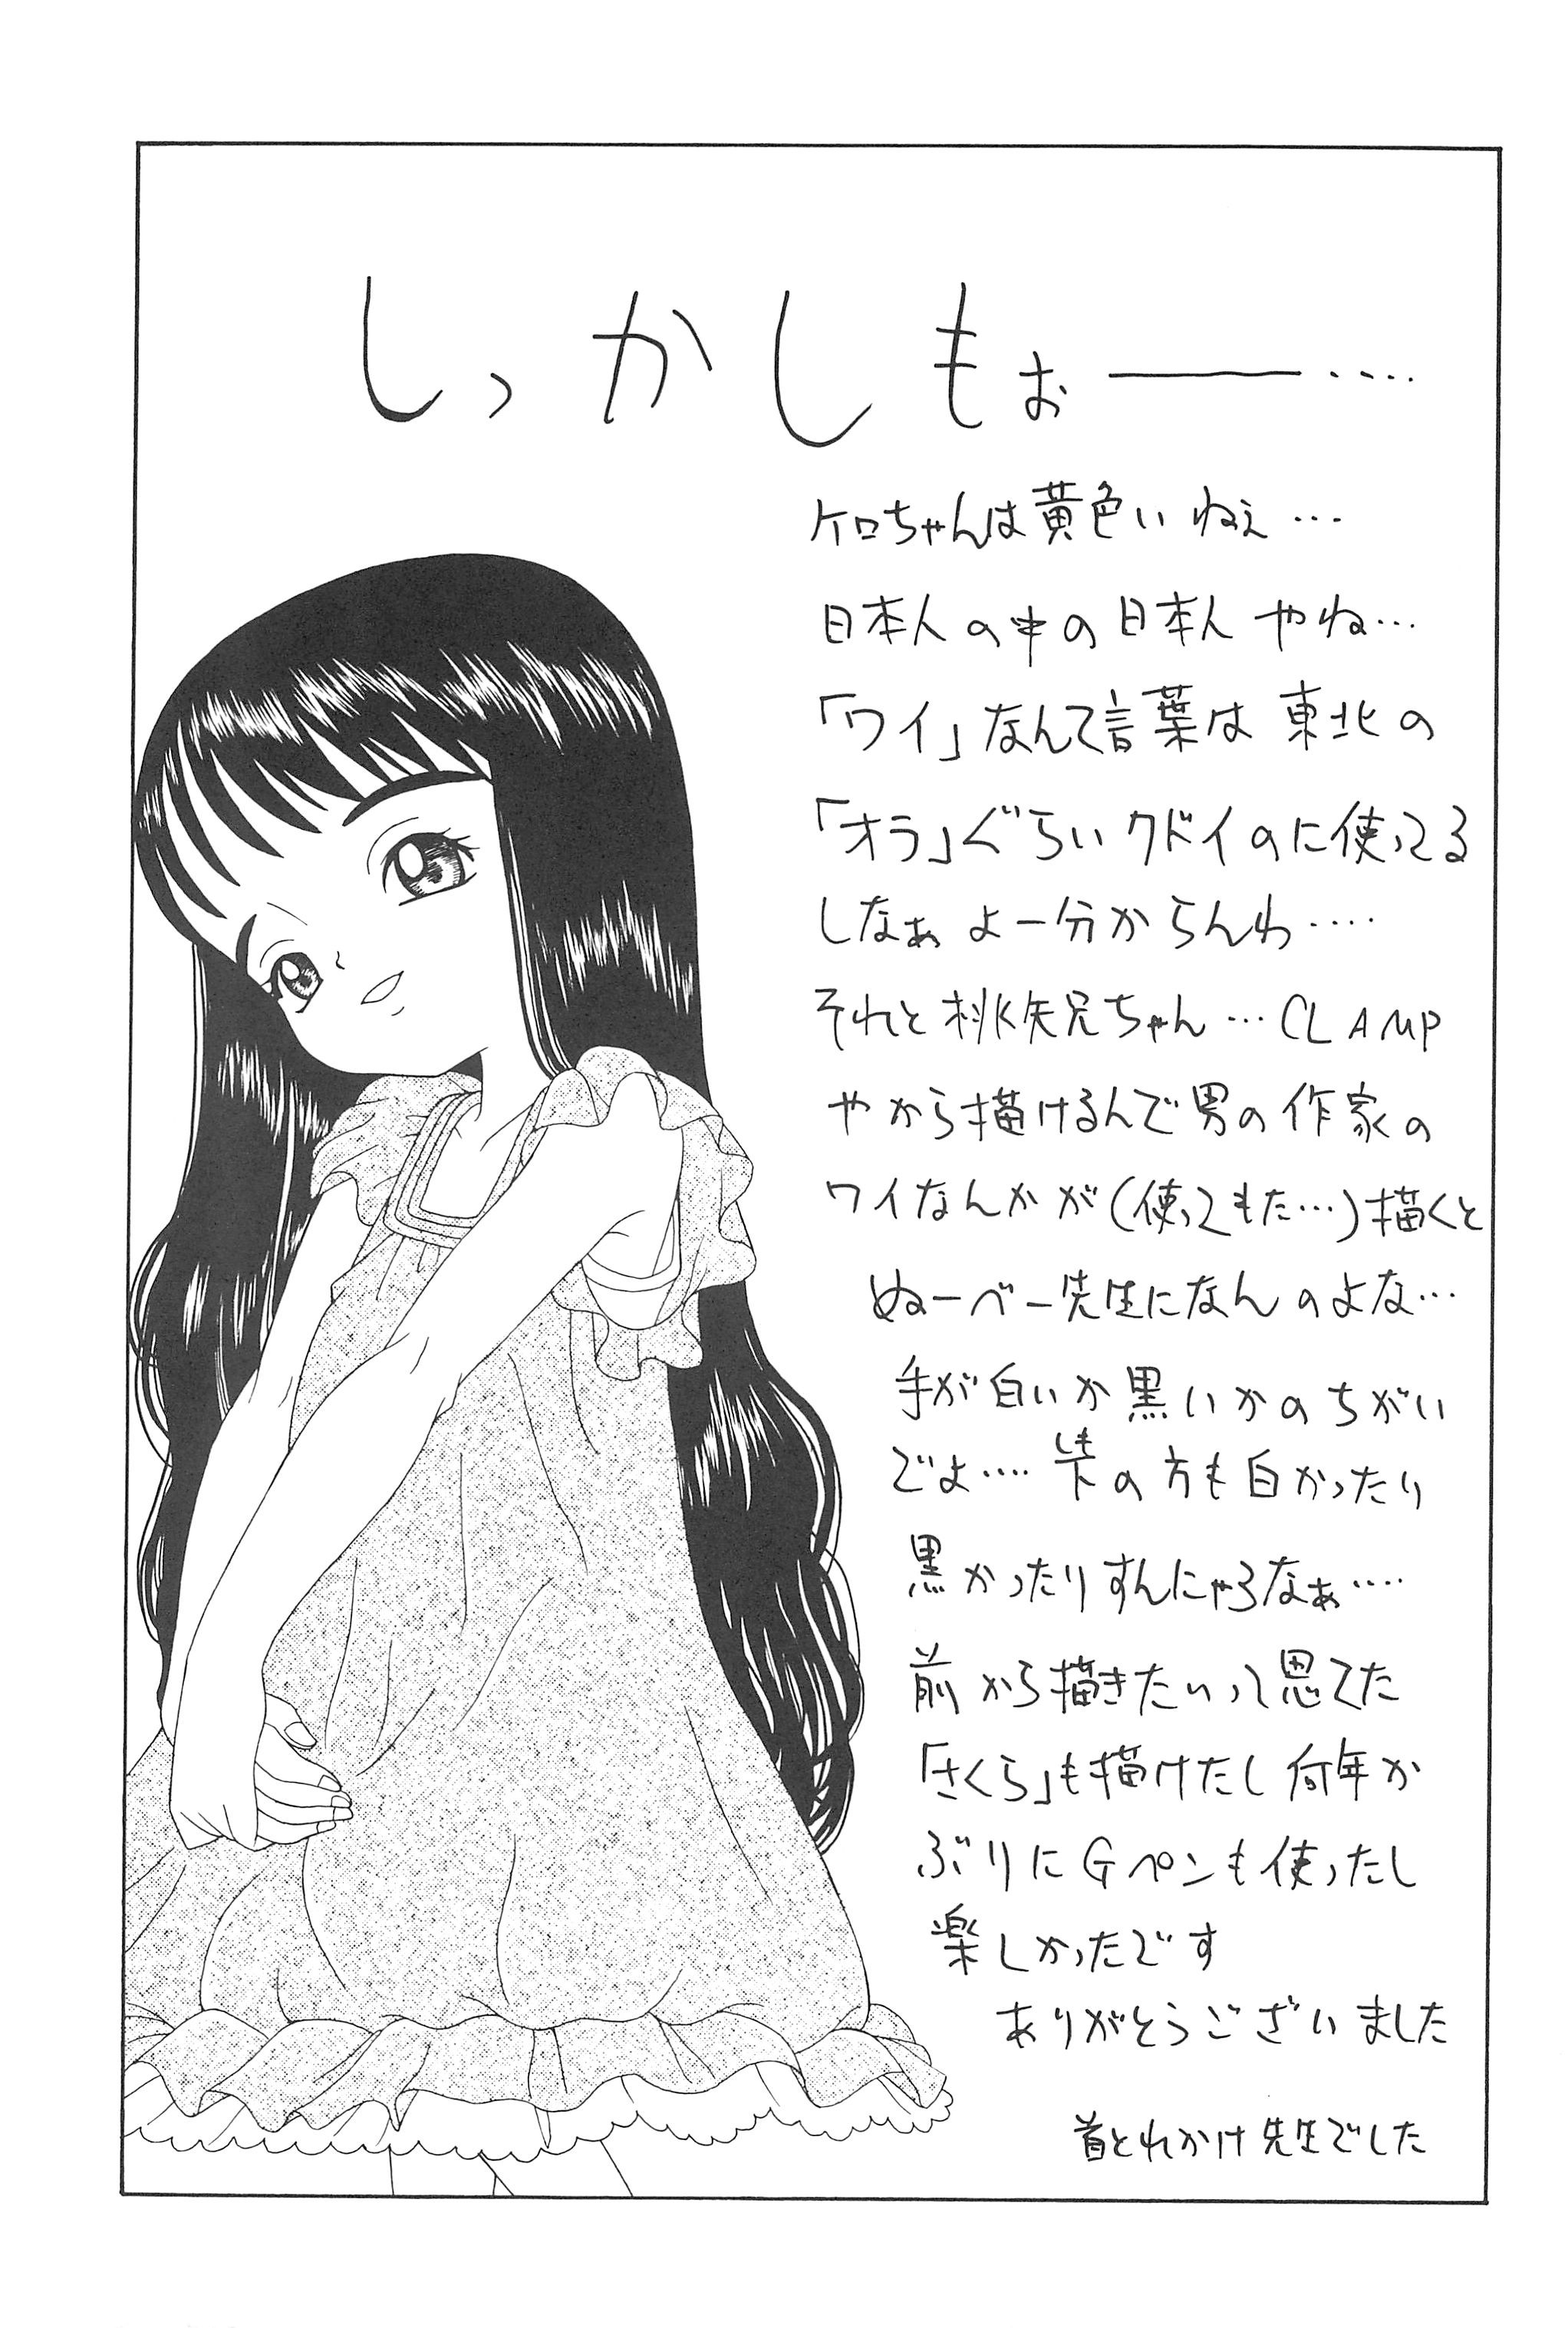 しっかしもぉ――‥‥
ケロちゃんは黄色いねぇ…
日本人の中の日本人やね…
「ワイ」なんて言葉は東北の
「オラ」ぐらいクドイのに使ってる
しなぁよー分からんわ‥‥
それと桃矢兄ちゃん…CLAMP
やから描けるんで男の作家の
ワイなんかが(使ってもた…)描くと
ぬーべー先生になんのよな…
手が白いか黒いかのちがい
でよ‥‥下の方も白かったり
黒かったりすんにゃろなぁ‥‥
前から描きたいって思てた
「さくら」も描けたし何年か
ぶりにGペンも使ったし
楽しかったです
ありがとうございました
首とれかけ先生でした